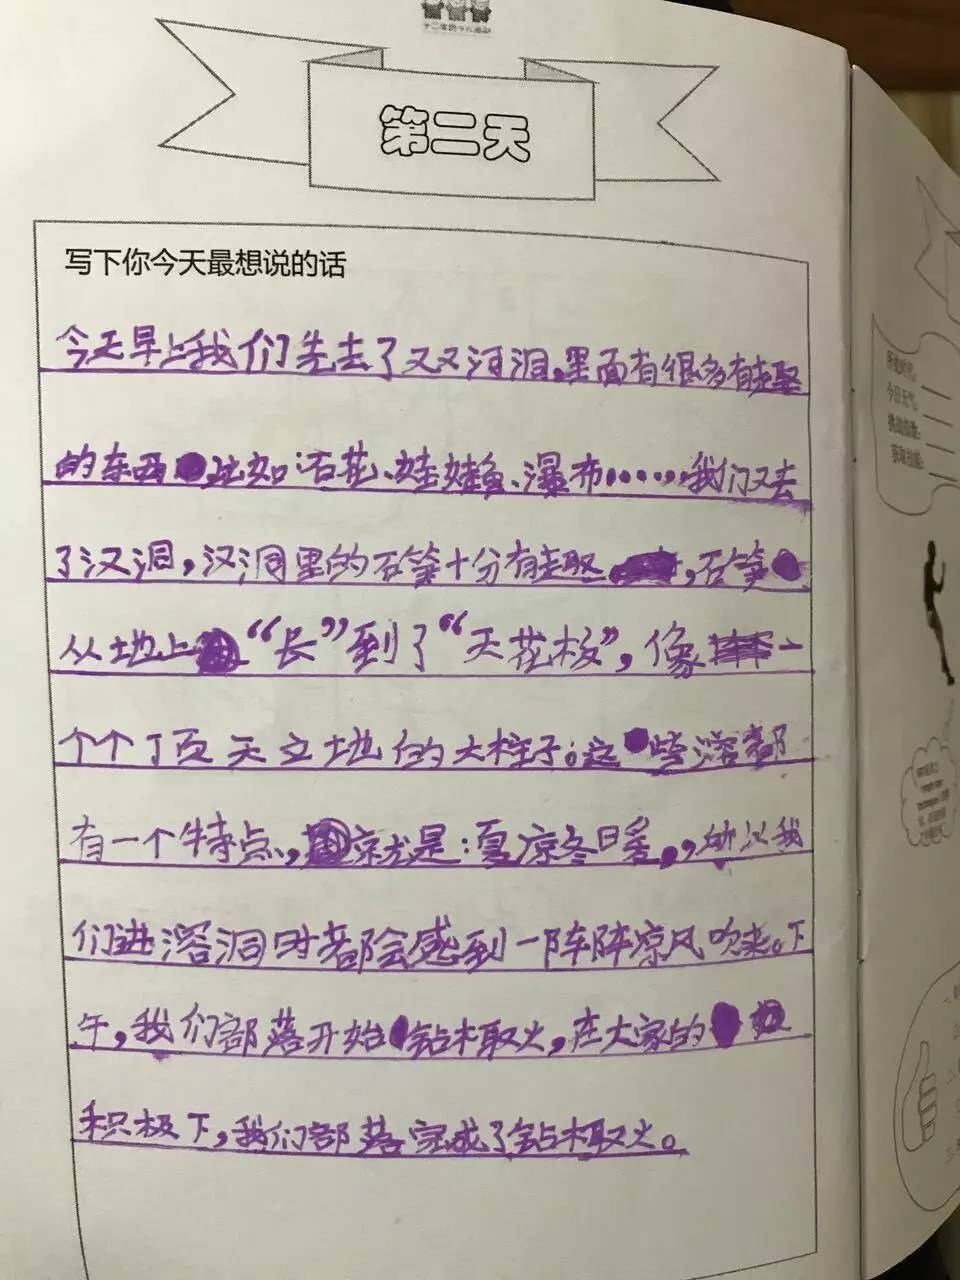 第二天
写下你今天最想说的话
今天早上我们先去了双河洞,里面有很多有趣
的东西,比如:石花、娃娃鱼、瀑布……,我们又去
了汉洞,汉洞里的石笋十分有趣,石笋
从地上“长”到了“天花板”,像一
个个顶天立地的大柱子。这些溶都
有一个特点,就是:夏凉冬日暖,,所以我
们进溶洞时都会感到一阵阵凉风吹来。下
午,我们部落开始钻木取火,在大家的
积极下,我们部落完成了钻木取火。
今日天气: